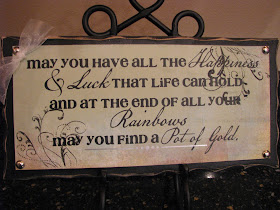 may you have all the Happiness
& Luck that life can hold
and at the end of all your
Rainbows
may you find a Pot of Gold.